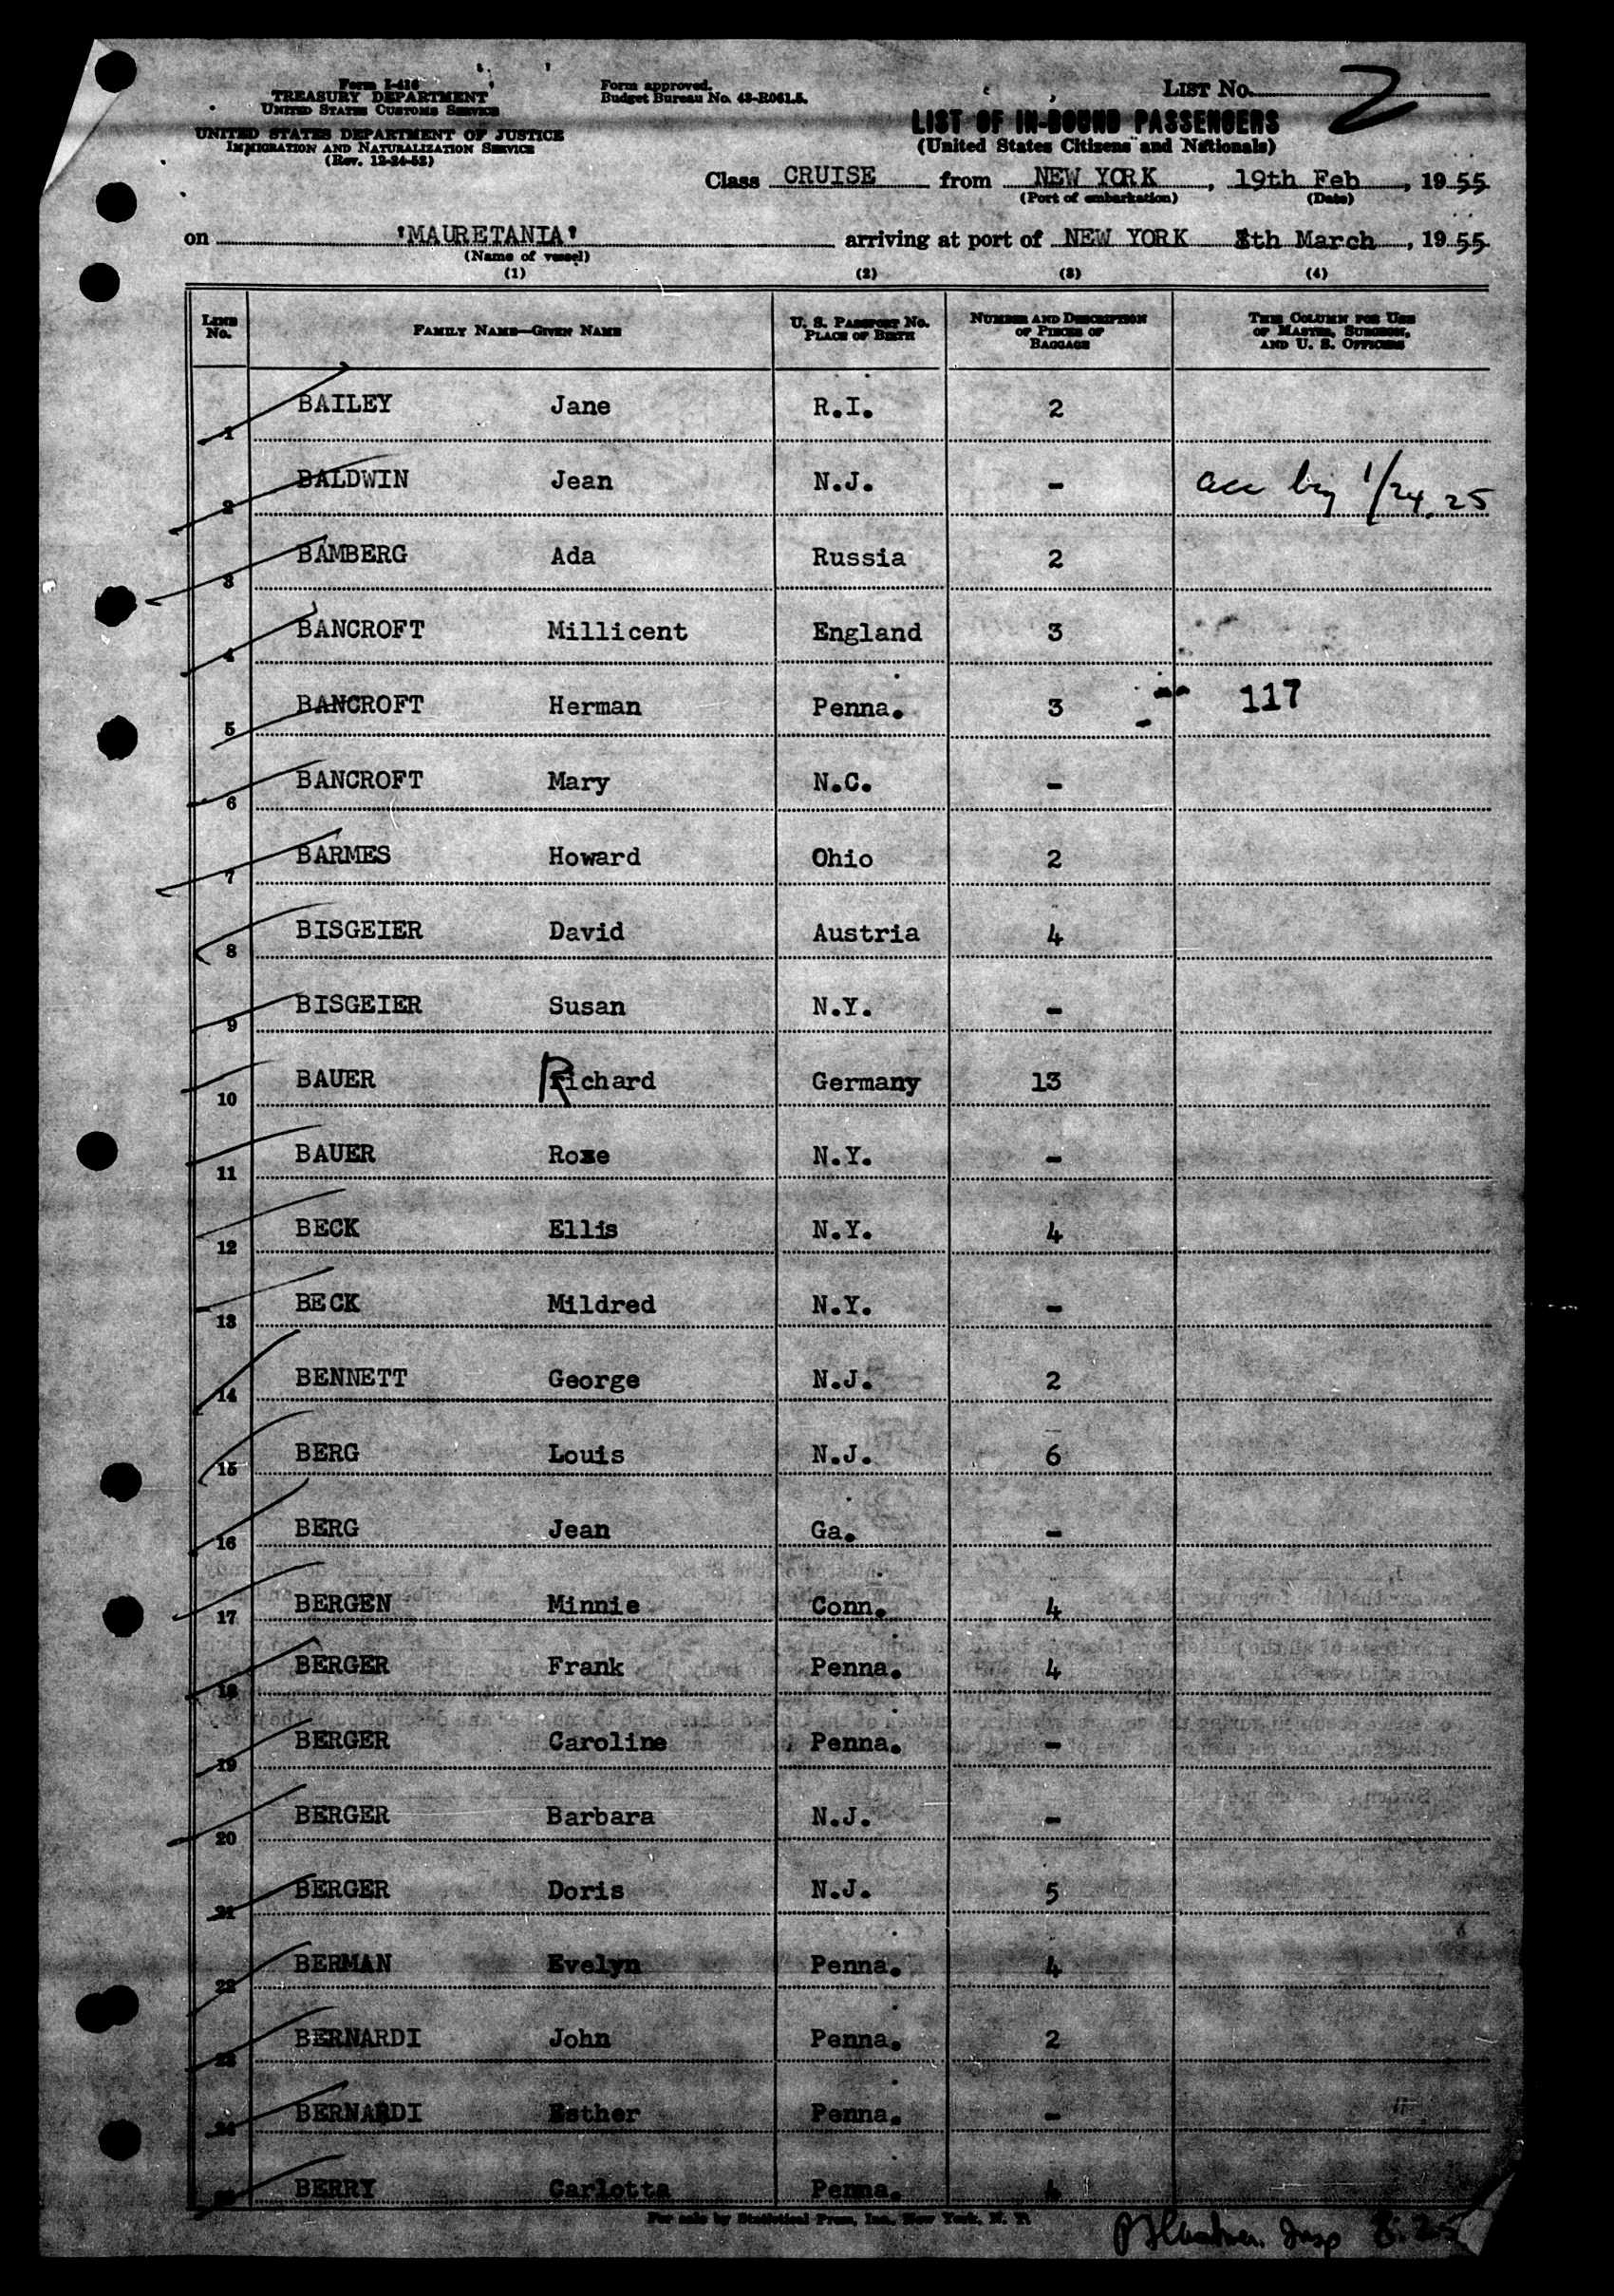 Form I-416
TREASURY DEPARTMENT
UNITED STATES CUSTOMS SERVICE
UNITED STATES DEPARTMENT OF JUSTICE
IMMIGRATION AND NATURALIZATION SERVICE
(Rev. 12-24-52)
Form approved.
Budget Bureau No. 43-R061.5.
LIST No. 2
LIST OF IN-BOUND PASSENGERS
(United States Citizens and Nationals)
Class CRUISE from NEW YORK, 19th Feb, 1955
(Port of embarkation) (Date)
on 'MAURETANIA' arriving at port of NEW YORK 8th March, 1955
(Name of vessel)
(1) (2) (3) (4)
LINE No. FAMILY NAME—GIVEN NAME U. S. PASSPORT No. PLACE OF BIRTH NUMBER AND DESCRIPTION OF PIECES OF BAGGAGE THIS COLUMN FOR USE OF MASTER, SURGEON, AND U. S. OFFICERS
1 BAILEY Jane R.I. 2
2 BALDWIN Jean N.J. - 1/24.25
3 BAMBERG Ada Russia 2
4 BANCROFT Millicent England 3
5 BANCROFT Herman Penna. 3 117
6 BANCROFT Mary N.C. -
7 BARMES Howard Ohio 2
8 BISGEIER David Austria 4
9 BISGEIER Susan N.Y. -
10 BAUER Richard Germany 13
11 BAUER Rose N.Y. -
12 BECK Ellis N.Y. 4
13 BECK Mildred N.Y. -
14 BENNETT George N.J. 2
15 BERG Louis N.J. 6
16 BERG Jean Ga. -
17 BERGEN Minnie Conn. 4
18 BERGER Frank Penna. 4
19 BERGER Caroline Penna. -
20 BERGER Barbara N.J. -
21 BERGER Doris N.J. 5
22 BERMAN Evelyn Penna. 4
23 BERNARDI John Penna. 2
24 BERNARDI Esther Penna. -
25 BERRY Carlotta Penna. 4
For sale by Statistical Press, Inc., New York, N. Y.